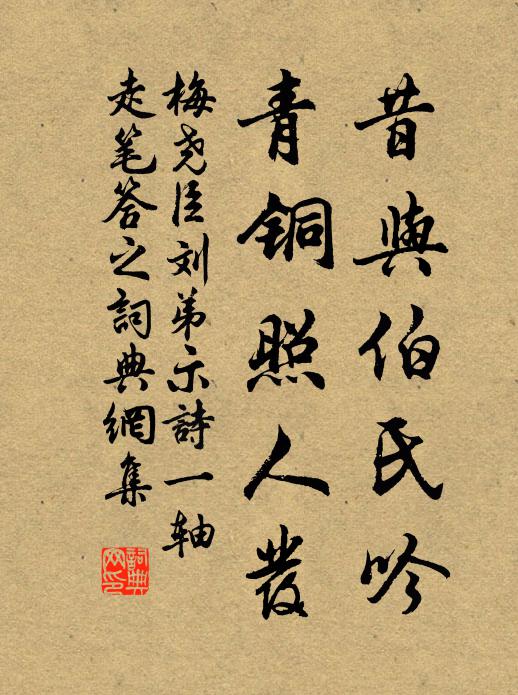 昔與伯氏吟
青銅照人發
梅尧臣刘弟示詩一軸
走笔答之詞典網集
詞典网印